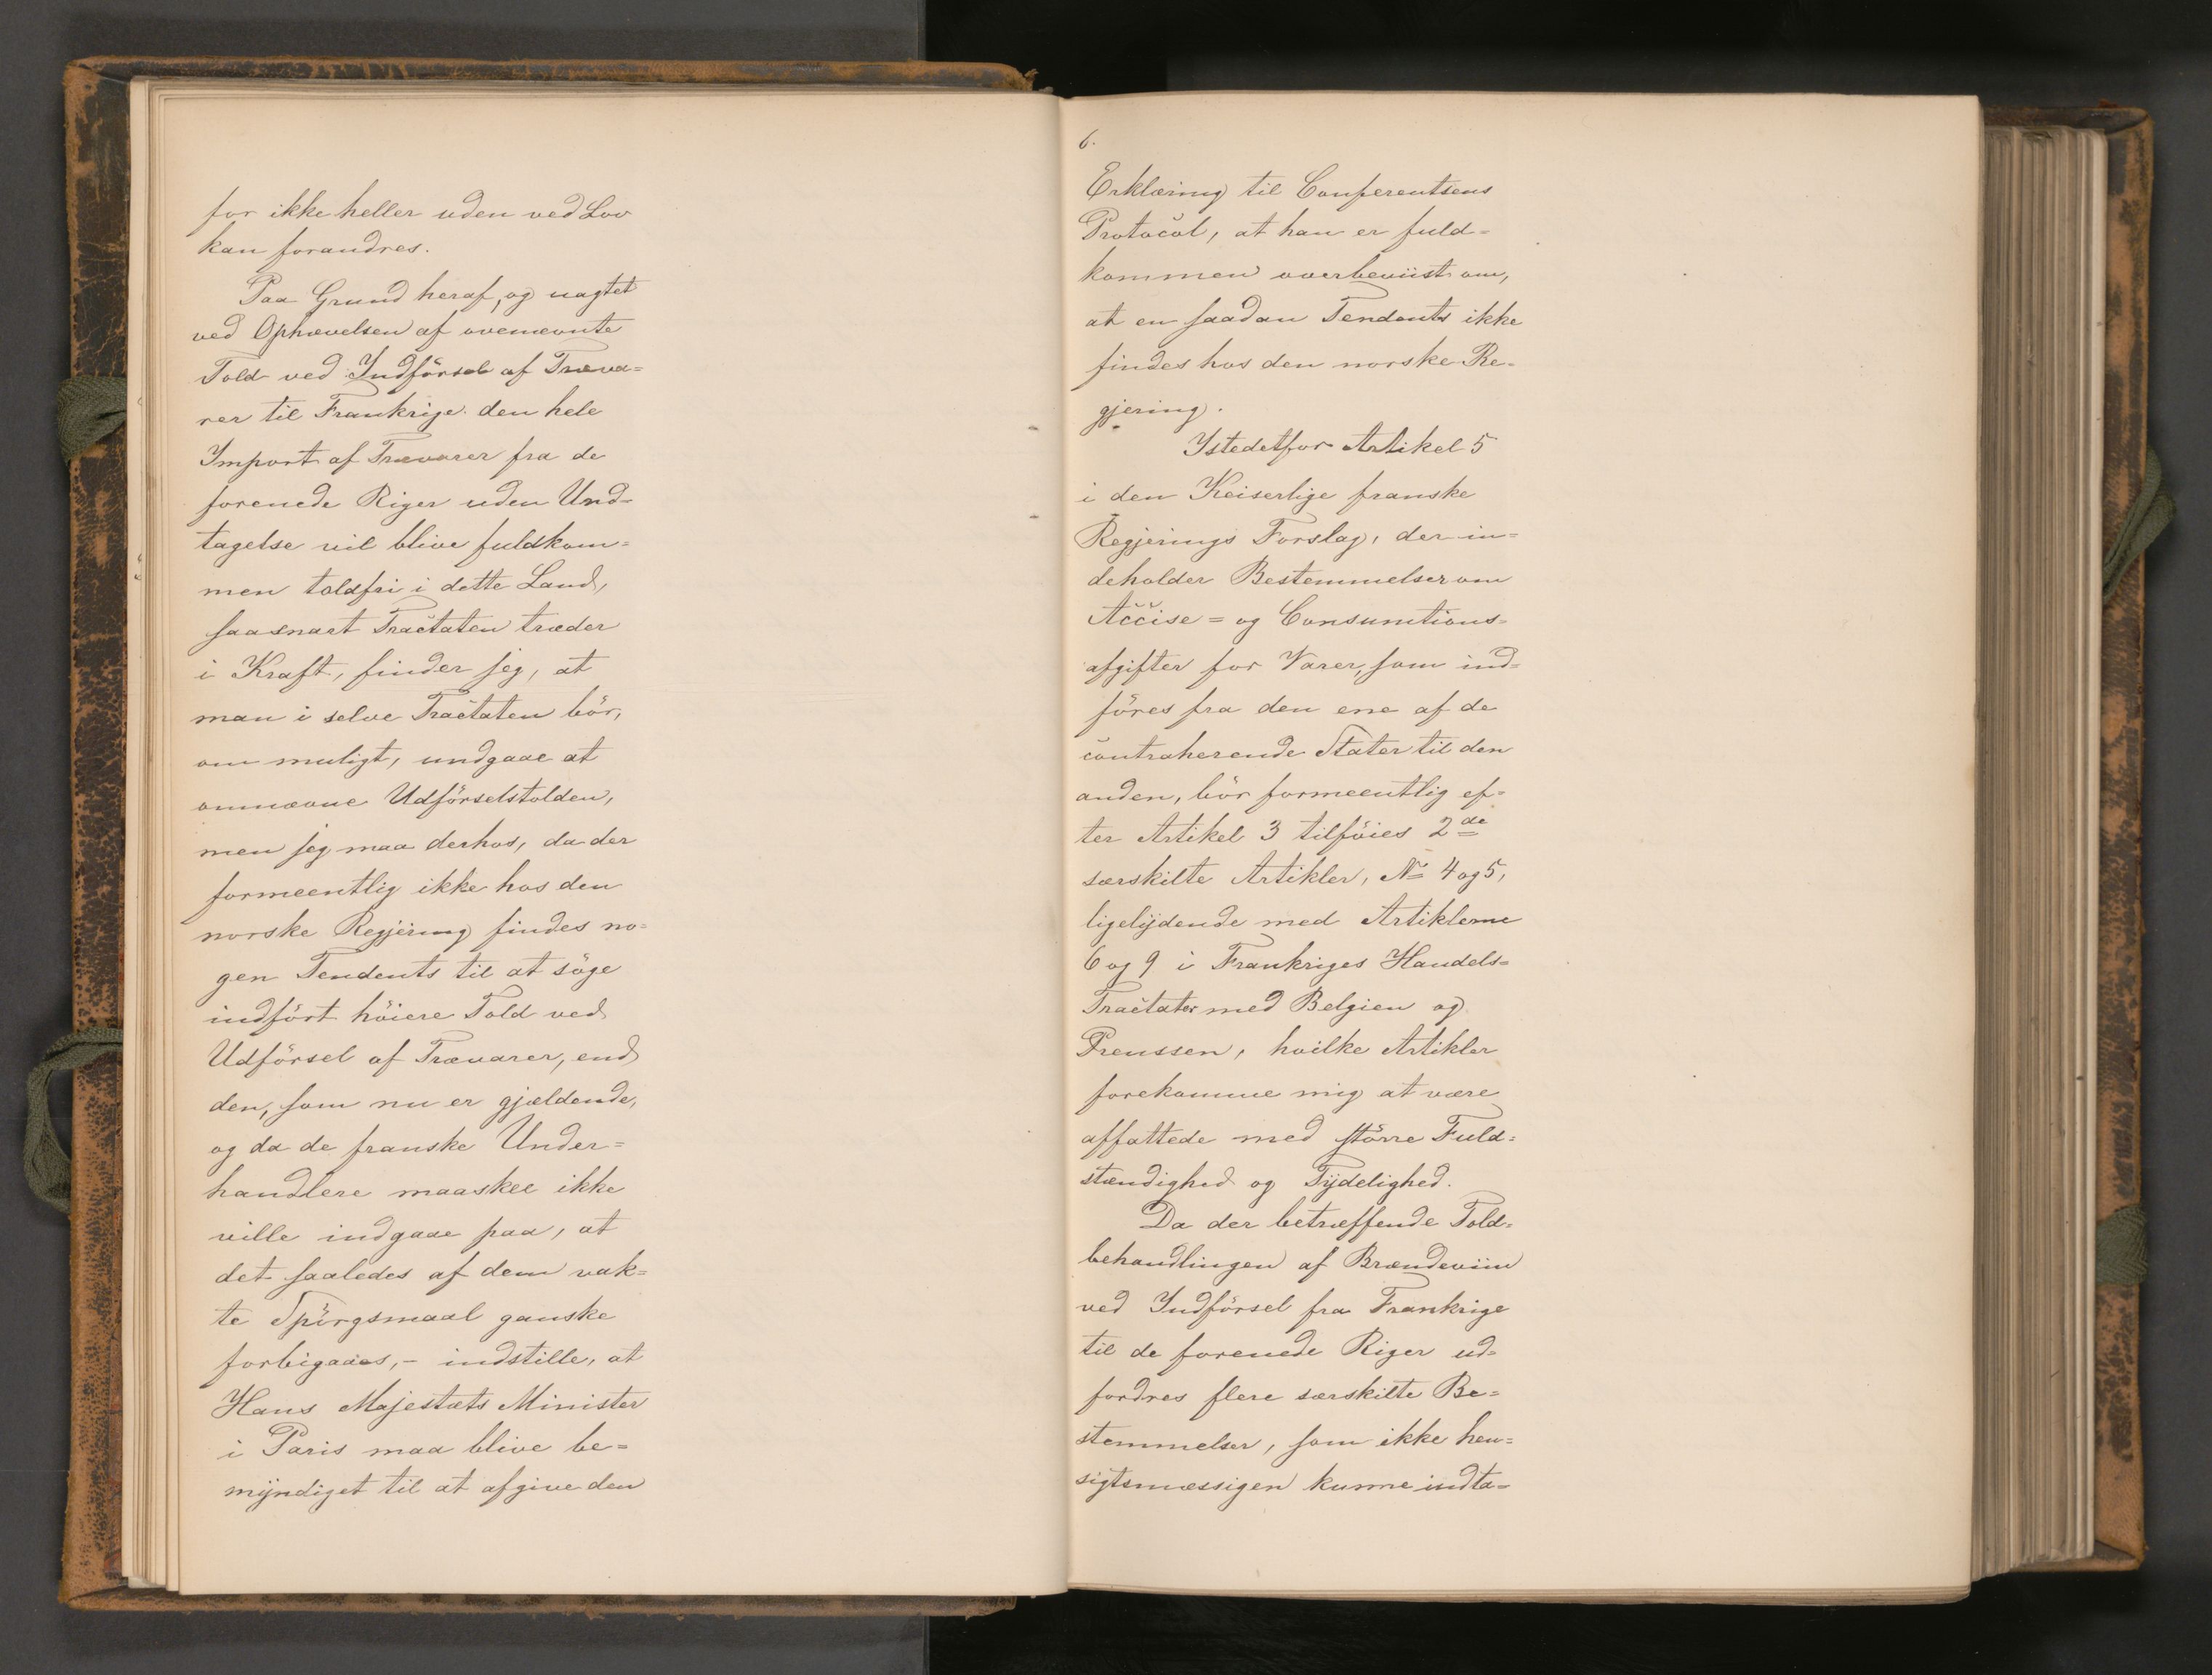 for ikke heller uden ved Lov
kan forandres.
Paa Grund heraf, og uagtet
ved Ophævelsen af ovennævnte
Told ved Indförsel af Træva=
rer til Frankrige den hele
Import af Trævarer fra de
forenede Riger uden Und=
tagelse vil blive fuldkom=
men toldfri i dette Land,
saasnart Tractaten træder
i Kraft, finder jeg, at
man i selve Tractaten bör,
om muligt, undgaae at
omnævne Udförselstolden,
men jeg maa derhos, da der
formeentlig ikke hos den
norske Regjering findes no=
gen Tendents til at söge
indfört höiere Told ved
Udförsel af Trævarer, end
den, som nu er gjældende,
og da de franske Under=
handlere maaskee ikke
ville indgaae paa, at
det saaledes af dem vak=
te Spörgsmaal ganske
forbigaaes, - indstille, at
Hans Majestæts Minister
i Paris maa blive be=
mÿndiget til at afgive den
6.
Erklæring til Conferentsens
Protocol, at han er fuld=
kommen overbeviist om,
at en saadan Tendents ikke
findes hos den norske Re=
gjering.
Istedetfor Artikel 5
i den Keiserlige franske
Regjerings Forslag, der in=
deholder Bestemmelser om
Accise= og Consumtions=
afgifter for Varer, som ind=
föres fra den ene af de
contraherende Stater til den
anden, bör formeentlig ef=
ter Artikel 3 tilföies 2de
særskilte Artikler, No 4 og 5,
ligelÿdende med Artiklerne
6 og 9 i Frankriges Handels=
Tractater med Belgien og
Preussen, hvilke Artikler
forekomme mig at være
affattede med större Fuld=
stændighed og Tÿdelighed.
Da der betræffende Told=
behandlingen af Brændeviin
ved Indförsel fra Frankrige
til de forenede Riger ud=
fordres flere særskilte Be=
stemmelser, som ikke hen=
sigtsmæssigen kunne indta=